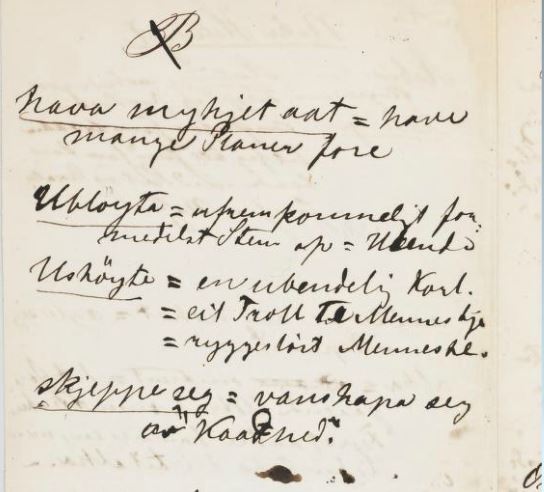 B
hava mykjet aat = have
mange Planer fore
Ubløyta = ufremkommeligt for-
medelst Steen op =
Ushöyte = en ubendelig Karl.
= eit Troll te Menneskje
= ryggeslöst Menneske.
skjeppe seg = vanskapa seg
"Kaadhed."